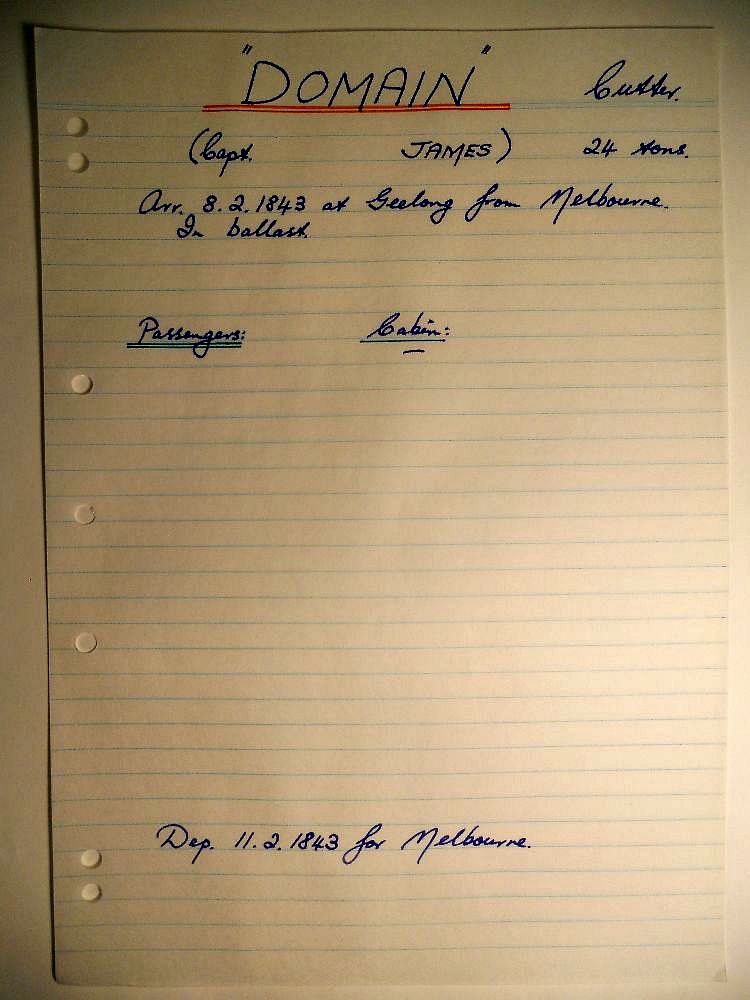 "DOMAIN" Cutter.
(Capt. JAMES) 24 tons.
Arr. 8.2.1843 at Geelong from Melbourne.
In ballast.
Passengers: Cabin:
—
Dep. 11.2.1843 for Melbourne.